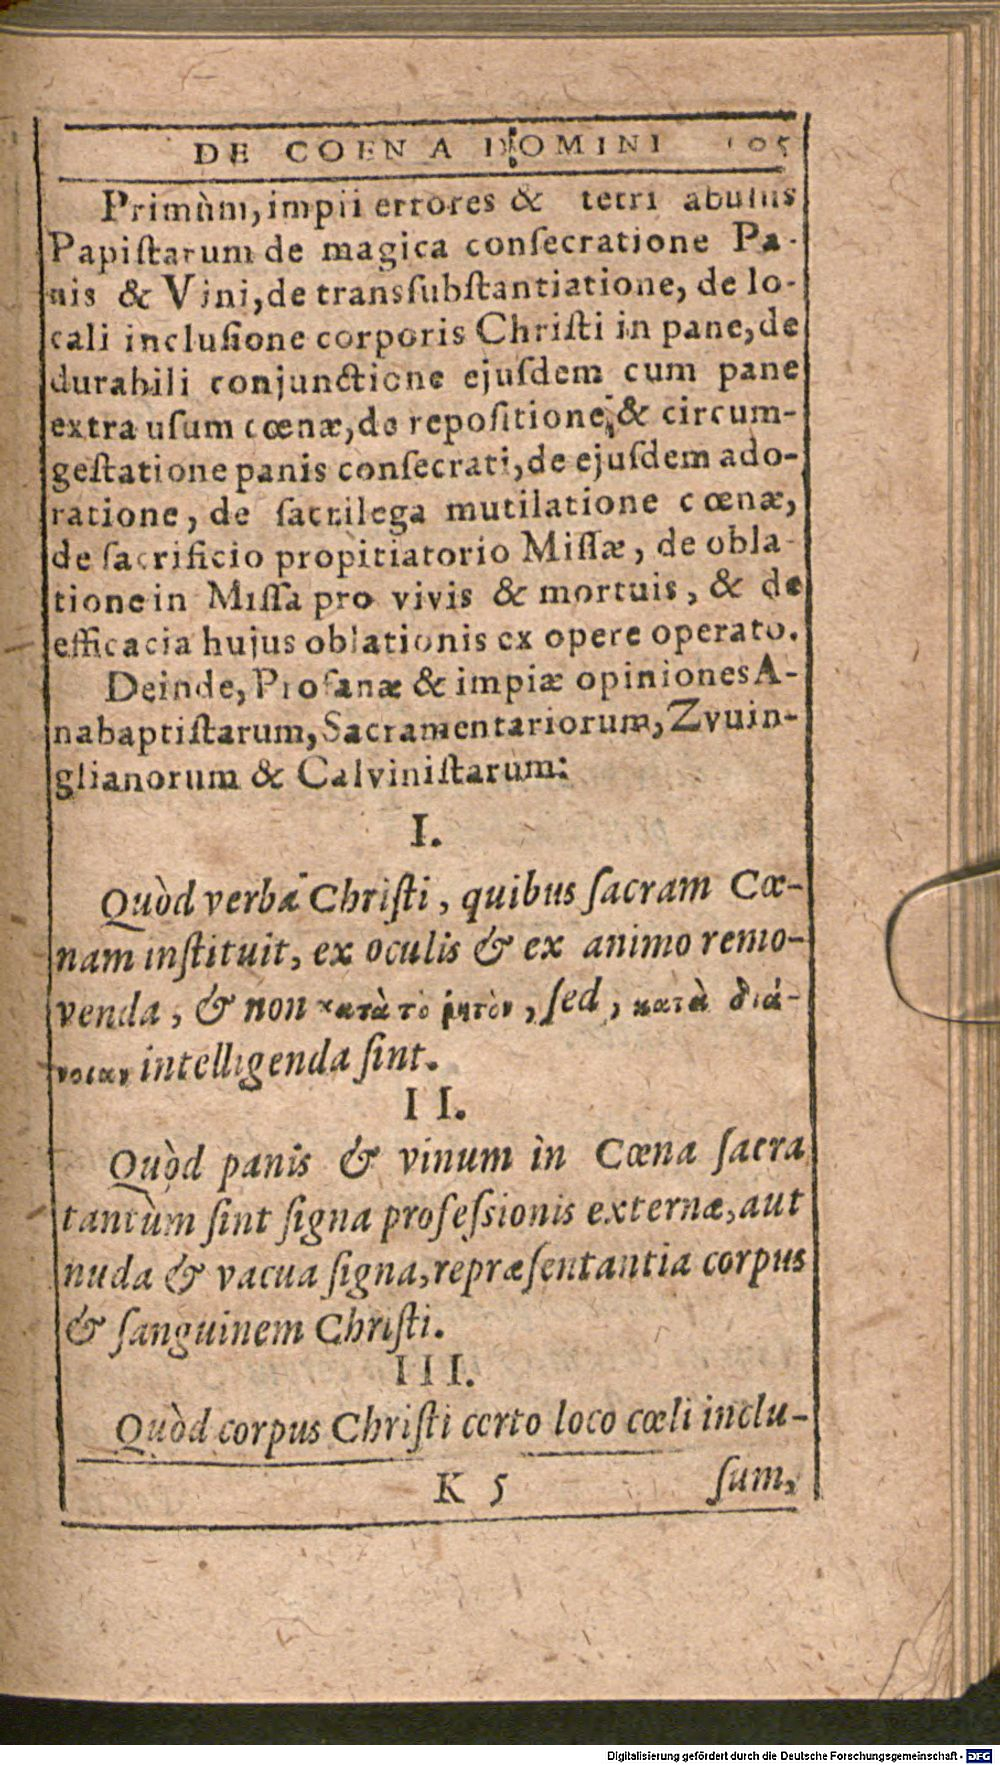 DE COENA DOMINI 105
Primùm, impii errores & tetri abusus
Papiſtarum de magica conſecratione Pa-
nis & Vini, de transſubſtantiatione, de lo-
cali incluſione corporis Chriſti in pane, de
durabili conjunctione ejuſdem cum pane
extra uſum cœnæ, de repoſitione, & circum-
geſtatione panis conſecrati, de ejuſdem ado-
ratione, de ſacrilega mutilatione cœnæ,
de ſacrificio propitiatorio Miſſæ, de obla-
tione in Miſſa pro vivis & mortuis, & de
efficacia hujus oblationis ex opere operato.
Deinde, Profanæ & impiæ opiniones A-
nabaptiſtarum, Sacramentariorum, Zvuin-
glianorum & Calviniſtarum:
I.
Quòd verba Chriſti, quibus ſacram Cœ-
nam inſtituit, ex oculis & ex animo remo-
venda, & non κατὰ τὸ ῥητὸν, ſed, κατὰ διά-
νοιαν intelligenda ſint.
II.
Quòd panis & vinum in Cœna ſacra
tantùm ſint ſigna profeſsionis externæ, aut
nuda & vacua ſigna, repræſentantia corpus
& ſanguinem Chriſti.
III.
Quòd corpus Chriſti certo loco cœli inclu-
K 5 ſum,
Digitalisierung gefördert durch die Deutsche Forschungsgemeinschaft - DFG